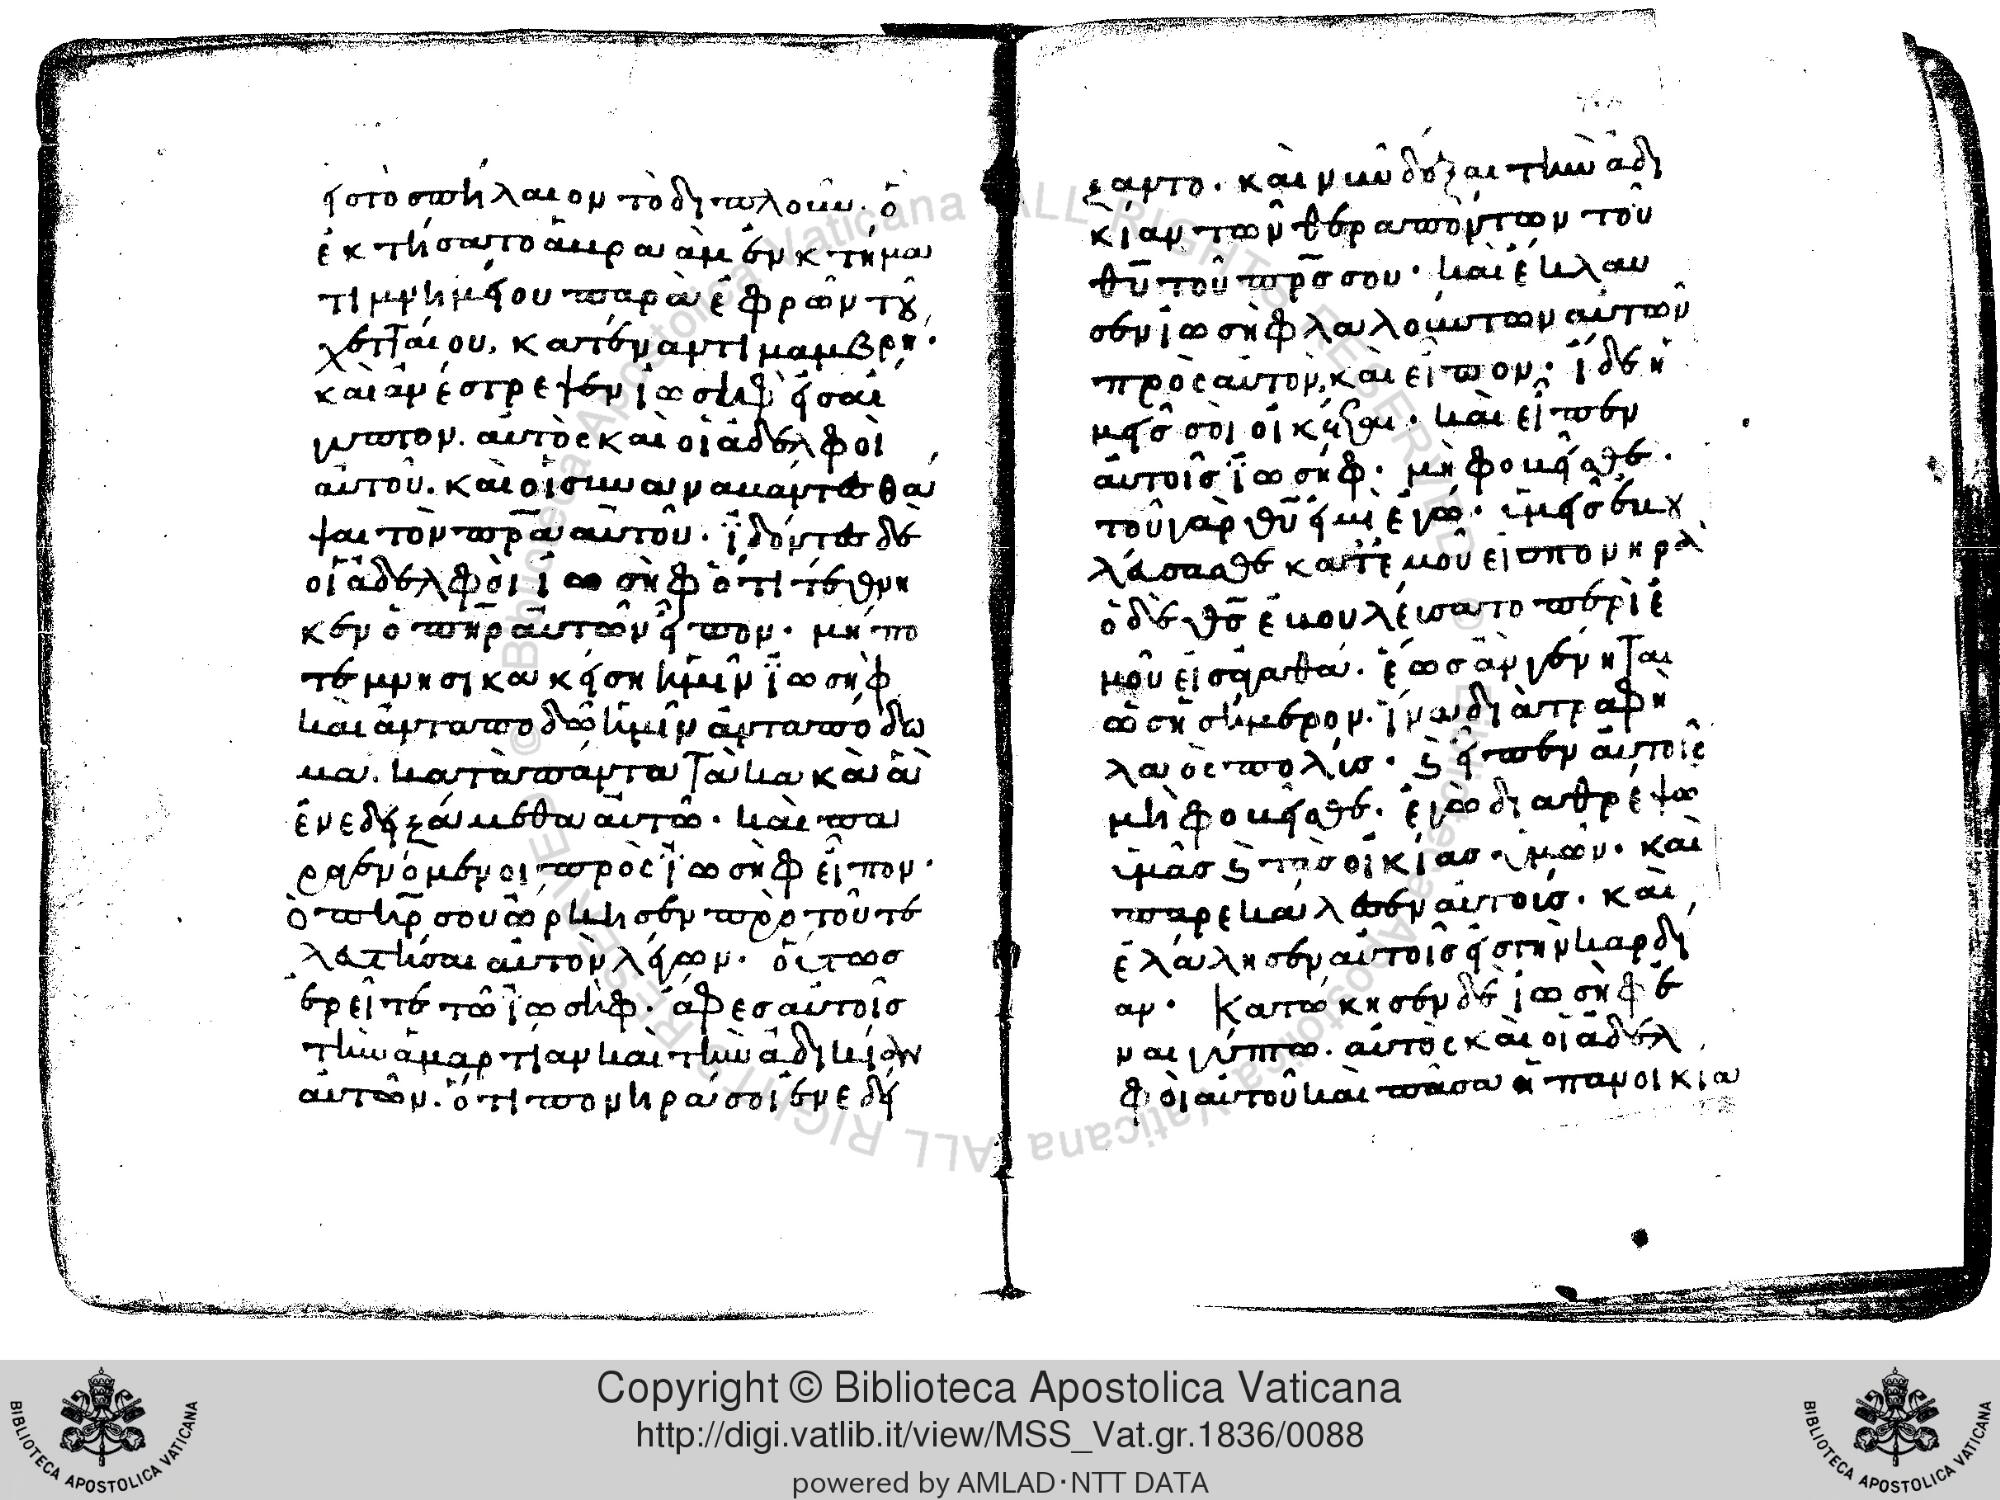 εἰς τὸ σπήλαιον τὸ διπλοῦν. ὃ
ἐκτήσατο ἁβραὰμ ἐν κτήμα
τι μνημείου παρὰ ἐφρῶν τοῦ
χετταίου, κατέναντι μαμβρη.
καὶ ἀνέστρεψεν ἰωσὴφ εἰς αἴ
γυπτον. αὐτὸς καὶ οἱ ἀδελφοὶ
αὐτοῦ. καὶ οἱ συναναβάντες θά
ψαι τὸν πρα αὐτοῦ. ἰδόντες δὲ
οἱ ἀδελφοὶ ἰωσὴφ ὅτι τέθνη
κεν ὁ πηρ αὐτῶν εἶπον. μήπο
τε μνησικακείση ἡμῖν ἰωσὴφ
καὶ ἀνταποδῶ ἡμῖν ἀνταπόδω
μα. κατὰ πάντα τὰ κακὰ ἃ
ἐνεδειξάμεθα αὐτῶ. καὶ πα
ραγενόμενοι πρὸς ἰωσὴφ εἶπον.
ὁ πηρ σου ὥρκησεν πρὸ τοῦ τε
λετῆσαι αὐτὸν λέγων. οὕτως
ἐρεῖτε τῶ ἰωσήφ. ἄφες αὐτοῖς
τὴν ἁμαρτίαν καὶ τὴν ἀδικίαν
αὐτῶν. ὅτι πονηρά σοι ἐνεδεί
ξαντο. καὶ νῦν δέξαι τὴν ἀδι
κίαν τῶν θεραπόντων τοῦ
θυ τοῦ πρς σου. καὶ ἔκλαυ
σεν ἰωσὴφ λαλούντων αὐτῶν
πρὸς αὐτὸν, καὶ εἶπον. ἰδὲ ἡ
μεῖς σοὶ οἰκέται. καὶ εἶπεν
αὐτοῖς ἰωσήφ. μὴ φοβεῖσθε.
τοῦ γὰρ θυ εἰμὶ ἐγώ. ὑμεῖς ἐβου
λεύσασθε κατ' ἐμοῦ εἰς πονηρὰ
ὁ δὲ θς ἐβουλεύσατο περὶ ἐ
μοῦ εἰς ἀγαθά. ἕως ἂν γένηται
ὡς ἡ σήμερον. ἵνα διατραφῆ
λαὸς πολύς. καὶ εἶπεν αὐτοῖς
μὴ φοβεῖσθε. ἐγὼ διαθρέψω
ὑμᾶς καὶ τὰς οἰκίας ὑμῶν. καὶ
παρεκάλεσεν αὐτούς. καὶ
ἐλάλησεν αὐτοῖς εἰς τὴν καρδί
αν. Κατώκησεν δὲ ἰωσὴφ ἐ
ν αἰγύπτω. αὐτὸς καὶ οἱ ἀδελ
φοὶ αὐτοῦ καὶ πᾶσα ἡ πανοικία
Copyright © Biblioteca Apostolica Vaticana
http://digi.vatlib.it/view/MSS_Vat.gr.1836/0088
powered by AMLAD·NTT DATA